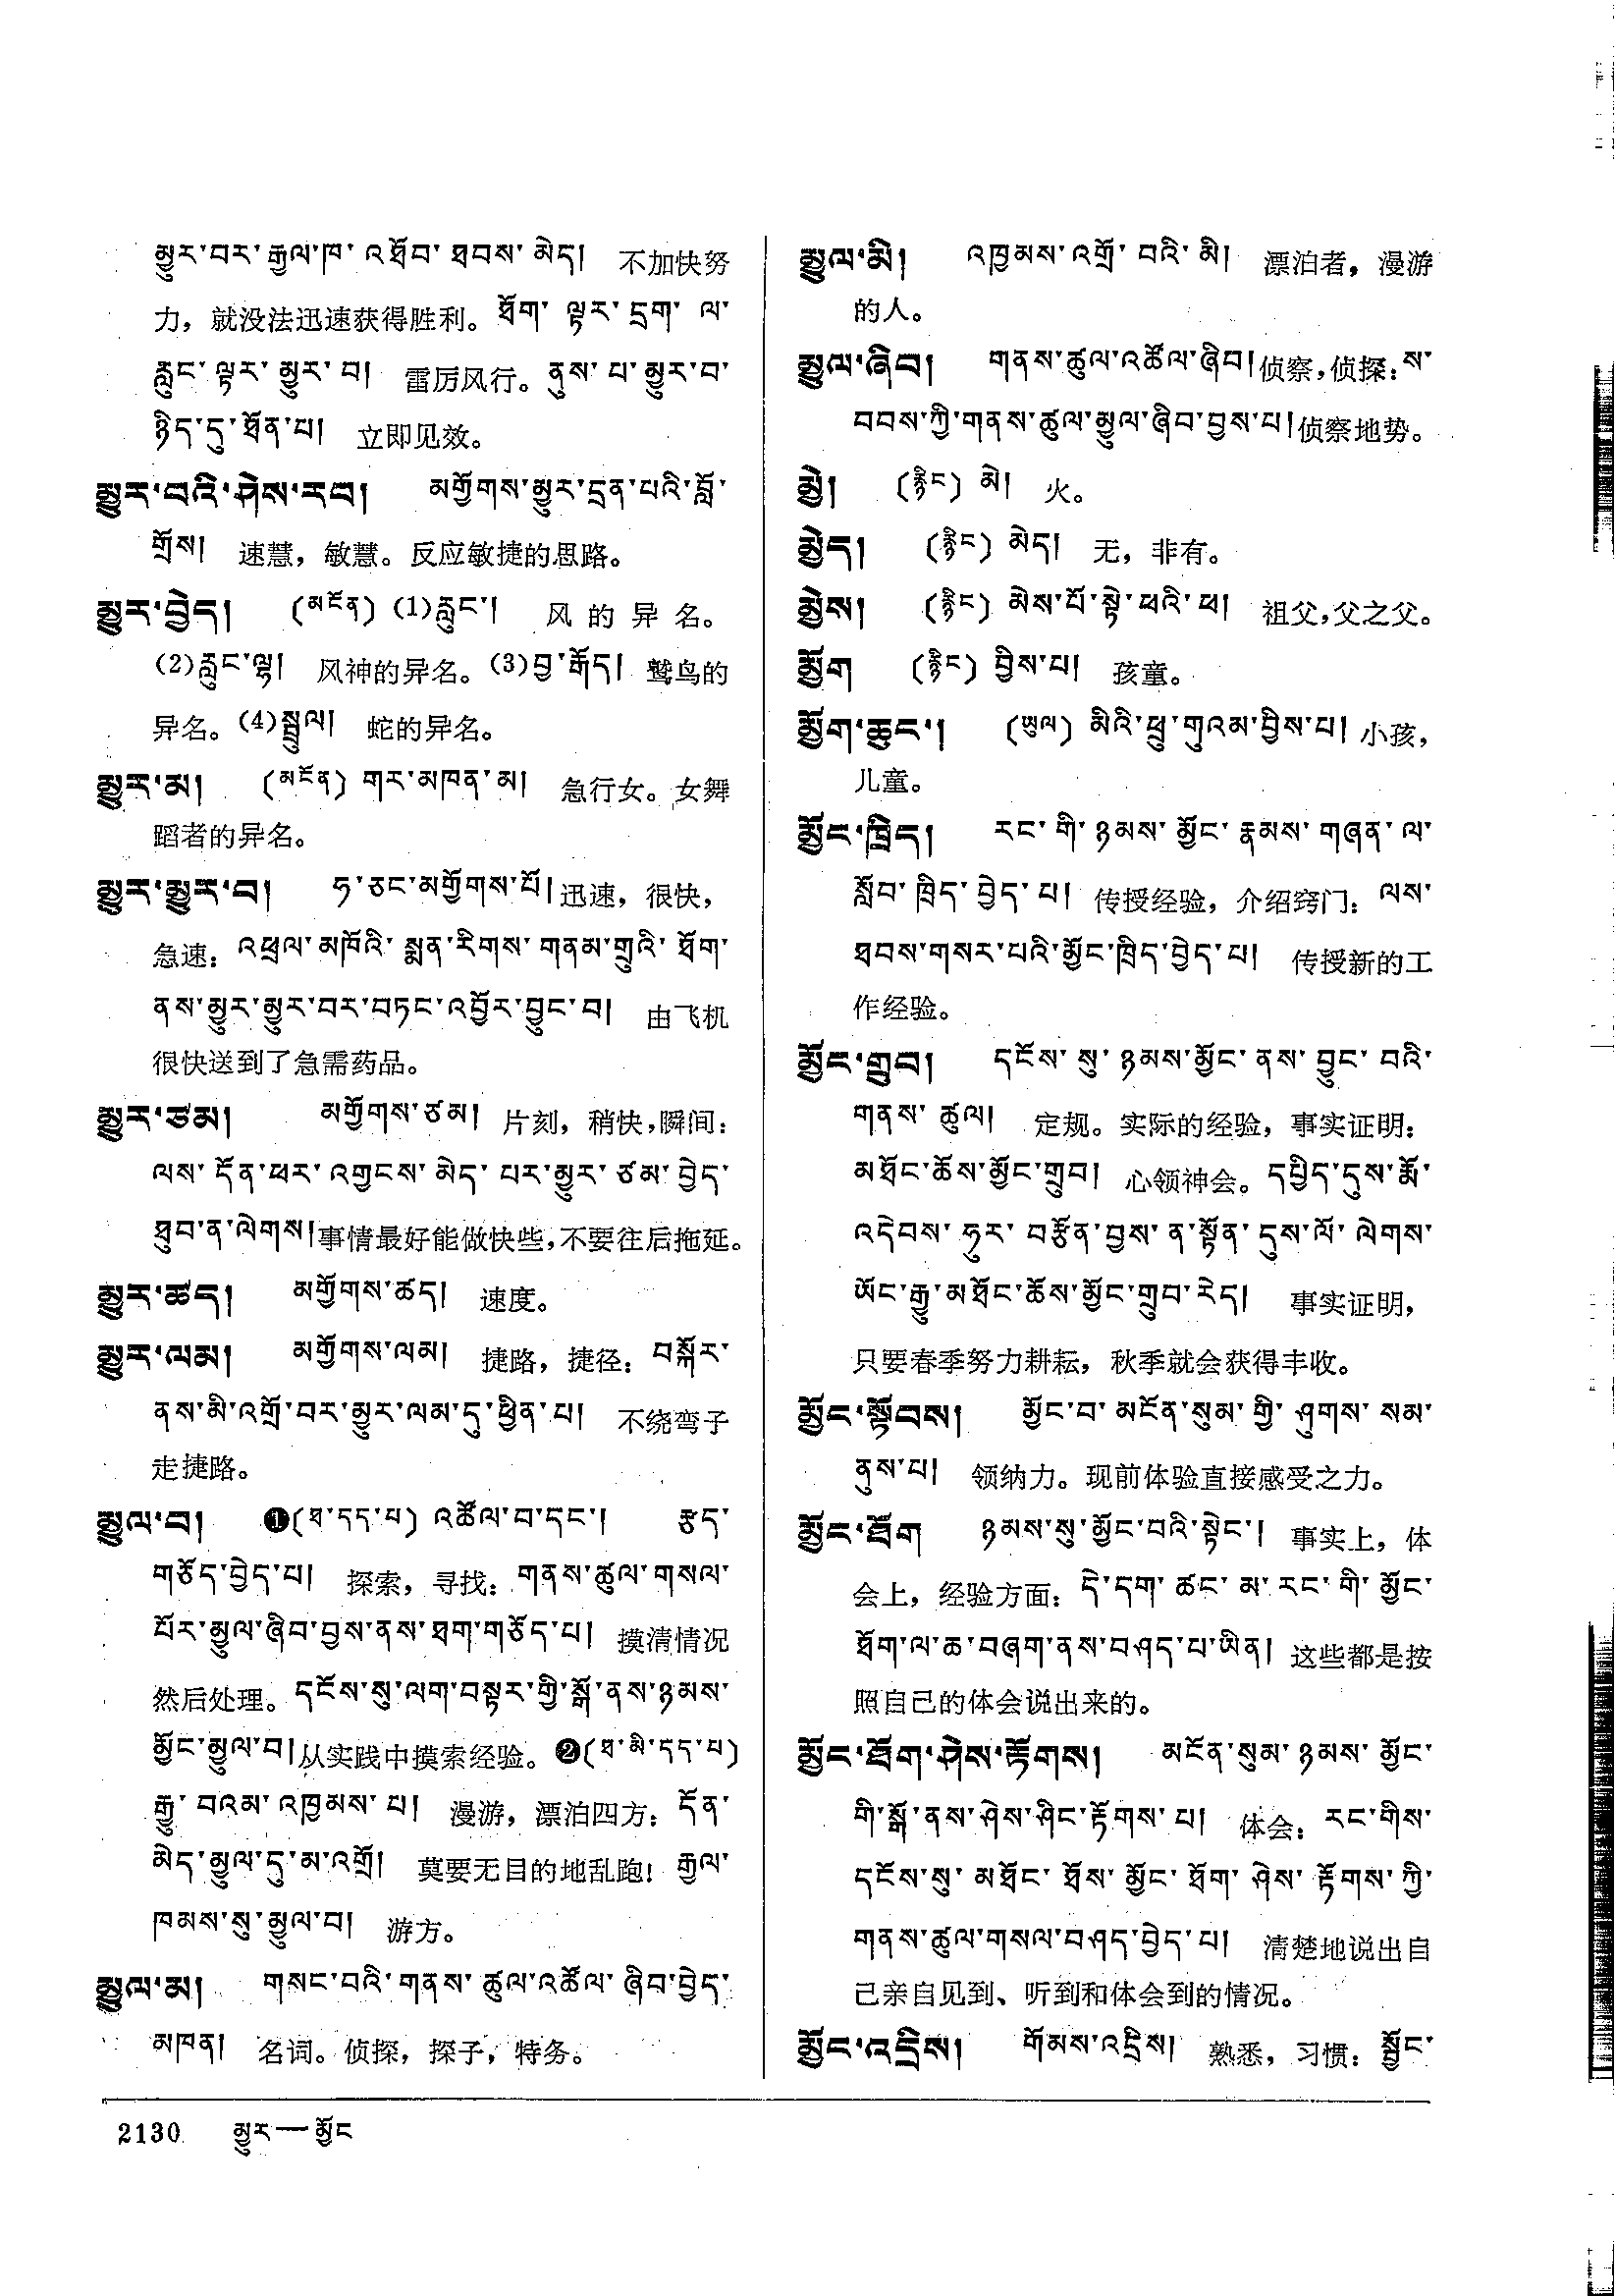 མྱུར་བར་རྒྱལ་ཁ་འཐོབ་ཐབས་མེད། 不加快努
力，就没法迅速获得胜利。ཐོག་ལྟར་དྲག་ལ་
རླུང་ལྟར་མྱུར་བ། 雷厉风行。ནུས་པ་མྱུར་བ་
ཉིད་དུ་ཐོན་པ། 立即见效。
མྱུར་བའི་ཤེས་རབ། མགྱོགས་མྱུར་དྲན་པའི་བློ་
གྲོས། 速慧，敏慧。反应敏捷的思路。
མྱུར་བྱེད། (མངོན) (1)རླུང་། 风的异名。
(2)རླུང་ལྷ། 风神的异名。(3)བྱ་རྒོད། 鹫鸟的
异名。(4)སྦྲུལ། 蛇的异名。
མྱུར་མ། (མངོན) གར་མཁན་མ། 急行女。女舞
蹈者的异名。
མྱུར་མྱུར་བ། ཧ་ཅང་མགྱོགས་པོ། 迅速，很快，
急速：འཕྲལ་མཁོའི་སྨན་རིགས་གནམ་གྲུའི་ཐོག་
ནས་མྱུར་མྱུར་བར་བཏང་འབྱོར་བྱུང་བ། 由飞机
很快送到了急需药品。
མྱུར་ཙམ། མགྱོགས་ཙམ། 片刻，稍快，瞬间：
ལས་དོན་ཕར་འགྱངས་མེད་པར་མྱུར་ཙམ་བྱེད་
ཐུབ་ན་ལེགས། 事情最好能做快些，不要往后拖延。
མྱུར་ཚད། མགྱོགས་ཚད། 速度。
མྱུར་ལམ། མགྱོགས་ལམ། 捷路，捷径：བསྐོར་
ནས་མི་འགྲོ་བར་མྱུར་ལམ་དུ་ཕྱིན་པ། 不绕弯子
走捷路。
མྱུལ་བ། ❶(ཐ་དད་པ) འཚོལ་བ་དང་། རྩད་
གཅོད་བྱེད་པ། 探索，寻找：གནས་ཚུལ་གསལ་
པོར་མྱུལ་ཞིབ་བྱས་ནས་ཐག་གཅོད་པ། 摸清情况
然后处理。དངོས་སུ་ལག་བསྟར་གྱི་སྒོ་ནས་ཉམས་
མྱོང་མྱུལ་བ། 从实践中摸索经验。❷(ཐ་མི་དད་པ)
རྒྱུ་བའམ་འཁྱམས་པ། 漫游，漂泊四方：དོན་
མེད་མྱུལ་དུ་མ་འགྲོ། 莫要无目的地乱跑！རྒྱལ་
ཁམས་སུ་མྱུལ་བ། 游方。
མྱུལ་མ། གསང་བའི་གནས་ཚུལ་འཚོལ་ཞིབ་བྱེད་
མཁན། 名词。侦探，探子，特务。
མྱུལ་མི། འཁྱམས་འགྲོ་བའི་མི། 漂泊者，漫游
的人。
མྱུལ་ཞིབ། གནས་ཚུལ་འཚོལ་ཞིབ། 侦察，侦探：ས་
བབས་ཀྱི་གནས་ཚུལ་མྱུལ་ཞིབ་བྱས་པ། 侦察地势。
མྱེ། (རྙིང) མེ། 火。
མྱེད། (རྙིང) མེད། 无，非有。
མྱེས། (རྙིང) མེས་པོ་སྟེ་ཕའི་ཕ། 祖父，父之父。
མྱོག (རྙིང) བྱིས་པ། 孩童。
མྱོག་ཆུང་། (ཡུལ) མིའི་ཕྲུ་གུའམ་བྱིས་པ། 小孩，
儿童。
མྱོང་ཁྲིད། རང་གི་ཉམས་མྱོང་རྣམས་གཞན་ལ་
སློབ་ཁྲིད་བྱེད་པ། 传授经验，介绍窍门：ལས་
ཐབས་གསར་པའི་མྱོང་ཁྲིད་བྱེད་པ། 传授新的工
作经验。
མྱོང་གྲུབ། དངོས་སུ་ཉམས་མྱོང་ནས་བྱུང་བའི་
གནས་ཚུལ། 定规。实际的经验，事实证明：
མཐོང་ཆོས་མྱོང་གྲུབ། 心领神会。དཔྱིད་དུས་རྨོ་
འདེབས་ཧུར་བརྩོན་བྱས་ན་སྟོན་དུས་ལོ་ལེགས་
ཡོང་རྒྱུ་མཐོང་ཆོས་མྱོང་གྲུབ་རེད། 事实证明，
只要春季努力耕耘，秋季就会获得丰收。
མྱོང་སྟོབས། མྱོང་བ་མངོན་སུམ་གྱི་ཤུགས་སམ་
ནུས་པ། 领纳力。现前体验直接感受之力。
མྱོང་ཐོག ཉམས་སུ་མྱོང་བའི་སྟེང་། 事实上，体
会上，经验方面：དེ་དག་ཚང་མ་རང་གི་མྱོང་
ཐོག་ལ་ཆ་བཞག་ནས་བཤད་པ་ཡིན། 这些都是按
照自己的体会说出来的。
མྱོང་ཐོག་ཤེས་རྟོགས། མངོན་སུམ་ཉམས་མྱོང་
གི་སྒོ་ནས་ཤེས་ཤིང་རྟོགས་པ། 体会：རང་གིས་
དངོས་སུ་མཐོང་ཐོས་མྱོང་ཐོག་ཤེས་རྟོགས་ཀྱི་
གནས་ཚུལ་གསལ་བཤད་བྱེད་པ། 清楚地说出自
己亲自见到、听到和体会到的情况。
མྱོང་འདྲིས། གོམས་འདྲིས། 熟悉，习惯：སྦྱོང་
2130 མྱུར—མྱོང